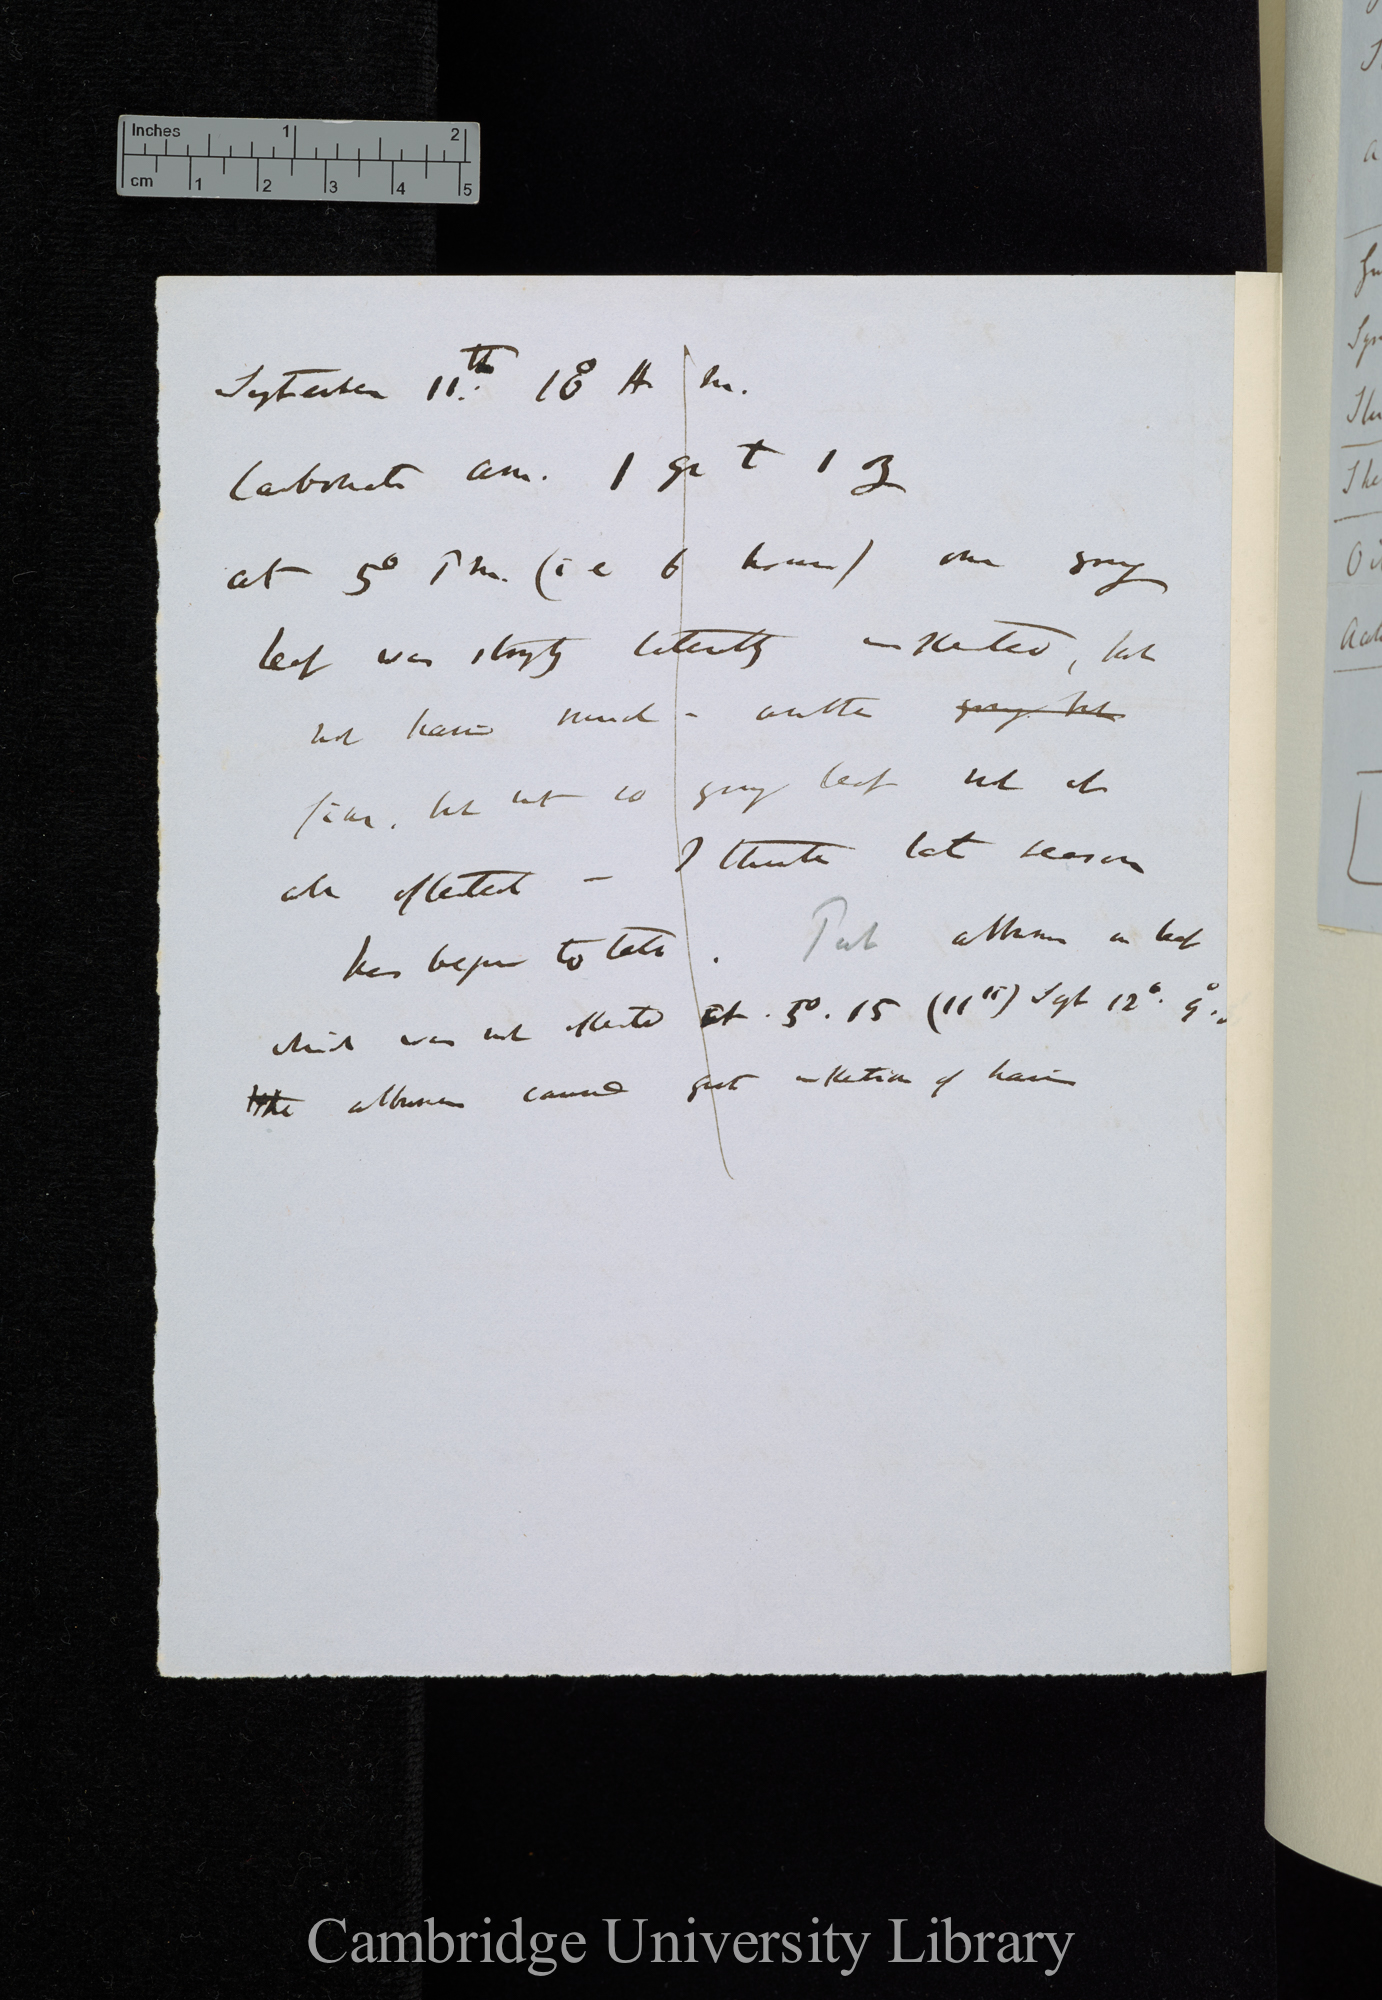 Inches 1 2
cm 1 2 3 4 5
September 11th. 10° A. m.
Carbonate am. 1 gr to 1 oz
at 5° P m. (i e 6 hours) one young
leaf was strongly laterally inflected, but
not hairs much - another young but
fine, but not so young leaf not at
all affected — I think late season
has begun to tell. Put albumen on leaf
which was not affected at 5°. 15 (11th) Sept 12°. 9°.
the albumen caused great inflection of hairs
Cambridge University Library